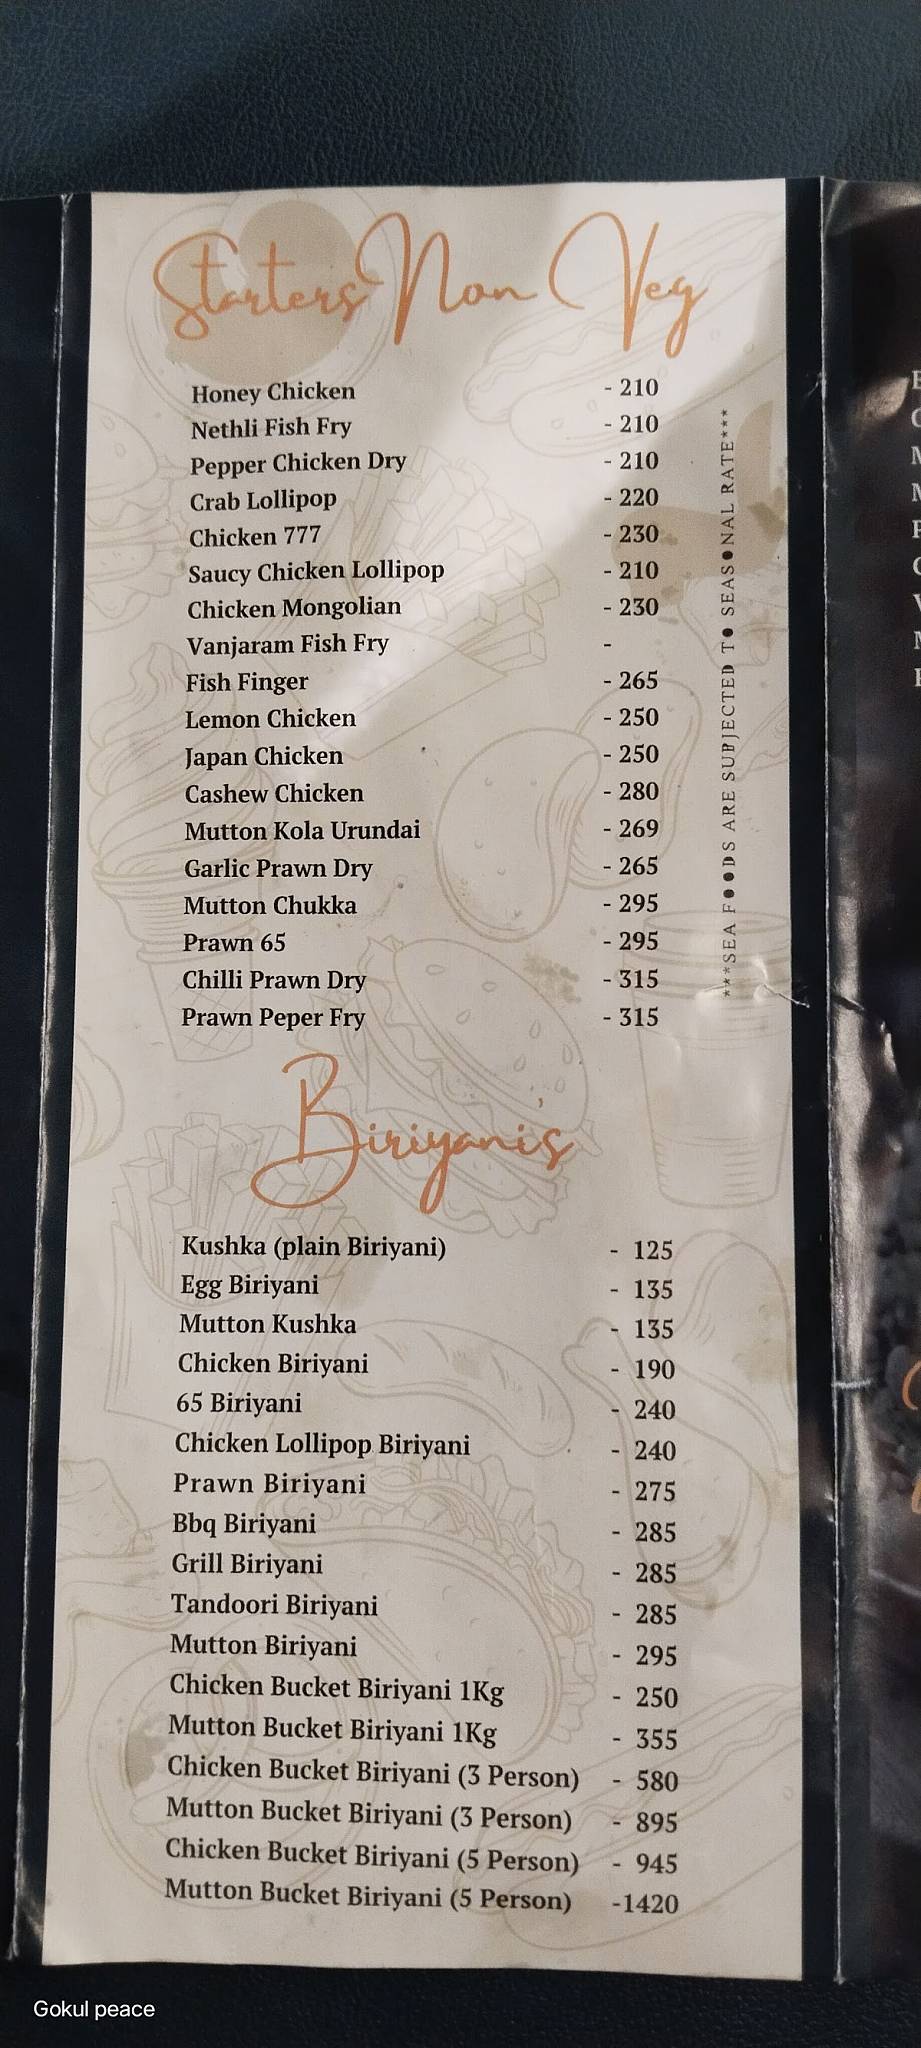 Starters Non Veg
Honey Chicken - 210
Nethli Fish Fry - 210
Pepper Chicken Dry - 210
Crab Lollipop - 220
Chicken 777 - 230
Saucy Chicken Lollipop - 210
Chicken Mongolian - 230
Vanjaram Fish Fry -
Fish Finger - 265
Lemon Chicken - 250
Japan Chicken - 250
Cashew Chicken - 280
Mutton Kola Urundai - 269
Garlic Prawn Dry - 265
Mutton Chukka - 295
Prawn 65 - 295
Chilli Prawn Dry - 315
Prawn Peper Fry - 315
***SEA FOODS ARE SUBJECTED TO SEASONAL RATE***
Biriyanis
Kushka (plain Biriyani) - 125
Egg Biriyani - 135
Mutton Kushka - 135
Chicken Biriyani - 190
65 Biriyani - 240
Chicken Lollipop Biriyani - 240
Prawn Biriyani - 275
Bbq Biriyani - 285
Grill Biriyani - 285
Tandoori Biriyani - 285
Mutton Biriyani - 295
Chicken Bucket Biriyani 1Kg - 250
Mutton Bucket Biriyani 1Kg - 355
Chicken Bucket Biriyani (3 Person) - 580
Mutton Bucket Biriyani (3 Person) - 895
Chicken Bucket Biriyani (5 Person) - 945
Mutton Bucket Biriyani (5 Person) -1420
Gokul peace